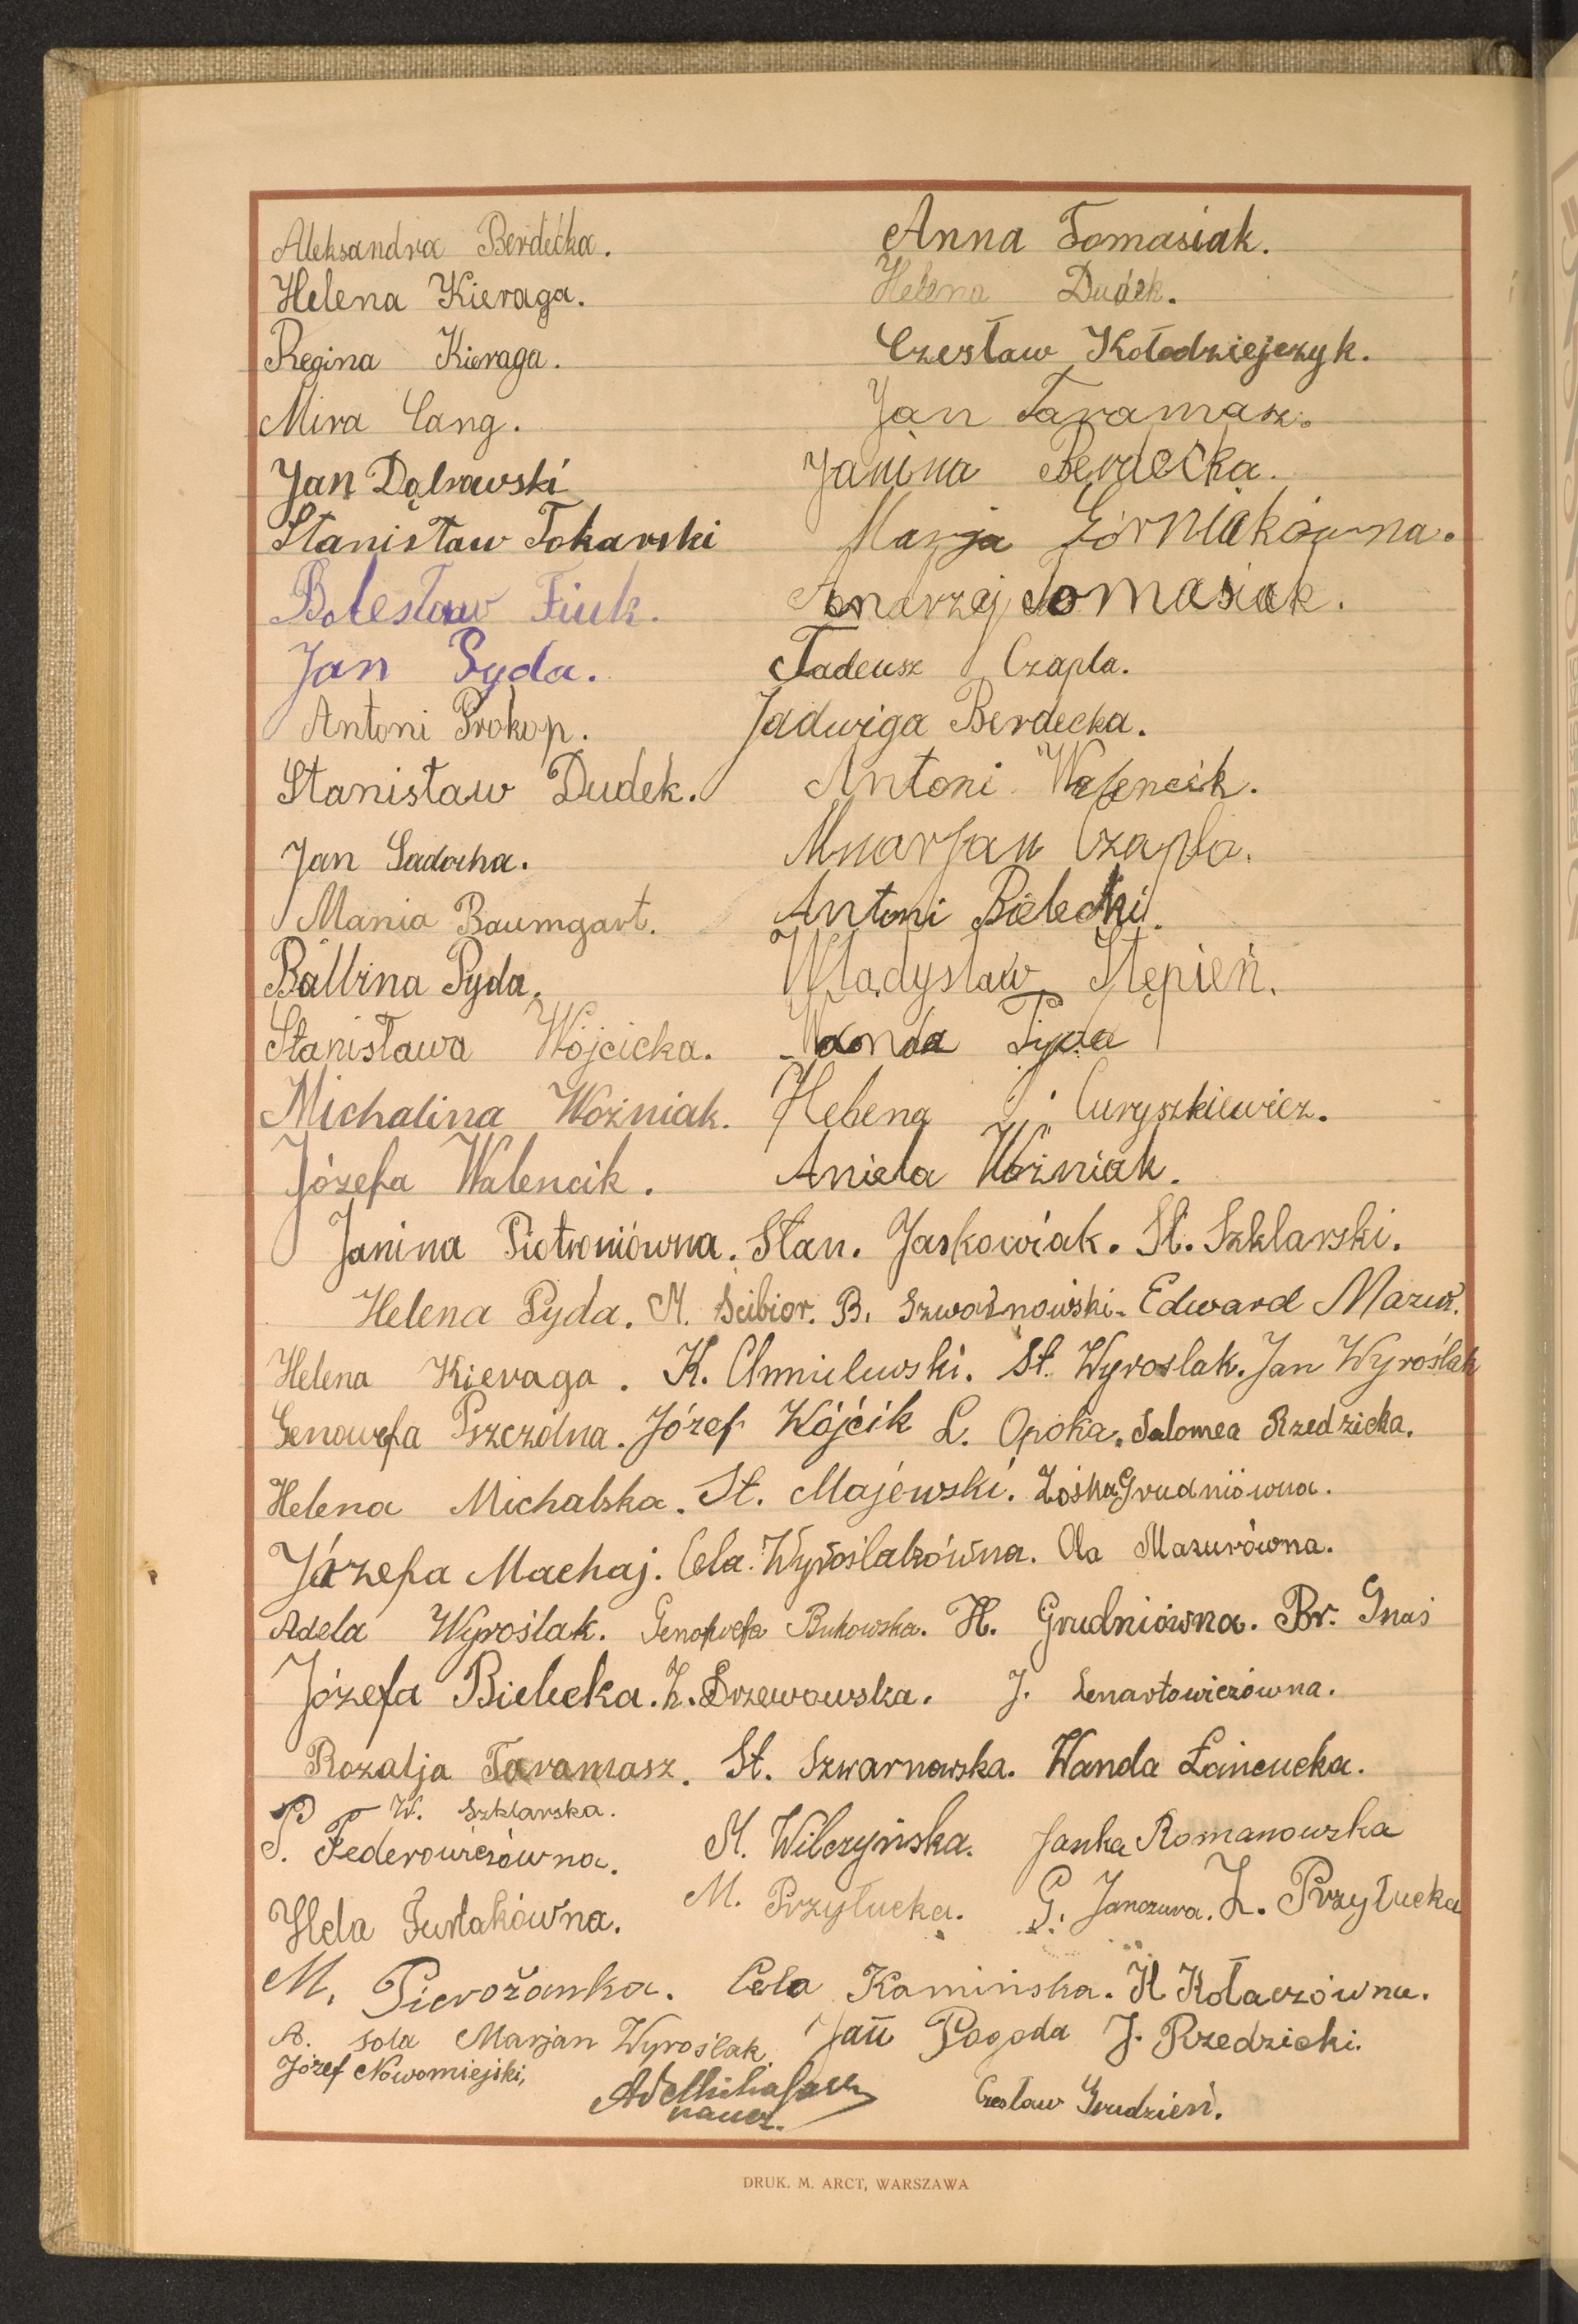 Aleksandra Berdećka. Anna Tomasiak.
Helena Kieraga. Helena Dudek.
Regina Kieraga. Czesław Kołodziejczyk.
Mira Cang. Jan Taramasz.
Jan Dąbrowski Janina Berdecka.
Stanisław Tokarski Marja Górniakówna.
Bolesław Fiuk. Andrzej Tomasiak.
Jan Pyda. Tadeusz Czapla.
Antoni Prokop. Jadwiga Berdecka.
Stanisław Dudek. Antoni Walencik.
Jan Sadocha. Czapla.
Mania Baumgart. Antoni Bielecki.
Balbina Pyda. Władysław Stępień.
Stanisława Wójcicka. Wanda Pyda
Michalina Woźniak. Helena Curyszkiewicz.
Józefa Walencik. Aniela Woźniak.
Janina Piotroniówna. Stan. Jaskowiak. St. Szklarski.
Helena Pyda. M. Ścibior. B. Szwarnowski. Edward Mazur.
Helena Kieraga. K. Chmielewski. St. Wyroslak. Jan Wyroślak
Genowefa Pszczólna. Józef Wójcik L. Opoka. Salomea Rzedzicka.
Helena Michalska. St. Majewski. Zośka Grudniówna.
Józefa Machaj. Cela Wyroślakówna. Ola Mazurówna.
Adela Wyroślak. Genowefa Bukowska. H. Grudniówna. Br. Gnaś
Józefa Bielecka. Z. Drzewowska. J. Lenartowiczówna.
Rozalja Taramasz. St. Szwarnowska. Wanda Łańcucka.
W. Szklarska.
P. Federowiczówna. M. Wilczyńska. Janka Romanowska
Hela Furtakówna. M. Przyłucka. G. Janczura. Z. Przyłucka
M. Pierożanka. Cela Kamińska. H Kołaczówna.
A. Sola Marjan Wyroślak Jan Pogoda J. Rzedzicki.
Józef Nowomiejski, Czesław Grudzień.
naucz.
DRUK. M. ARCT, WARSZAWA